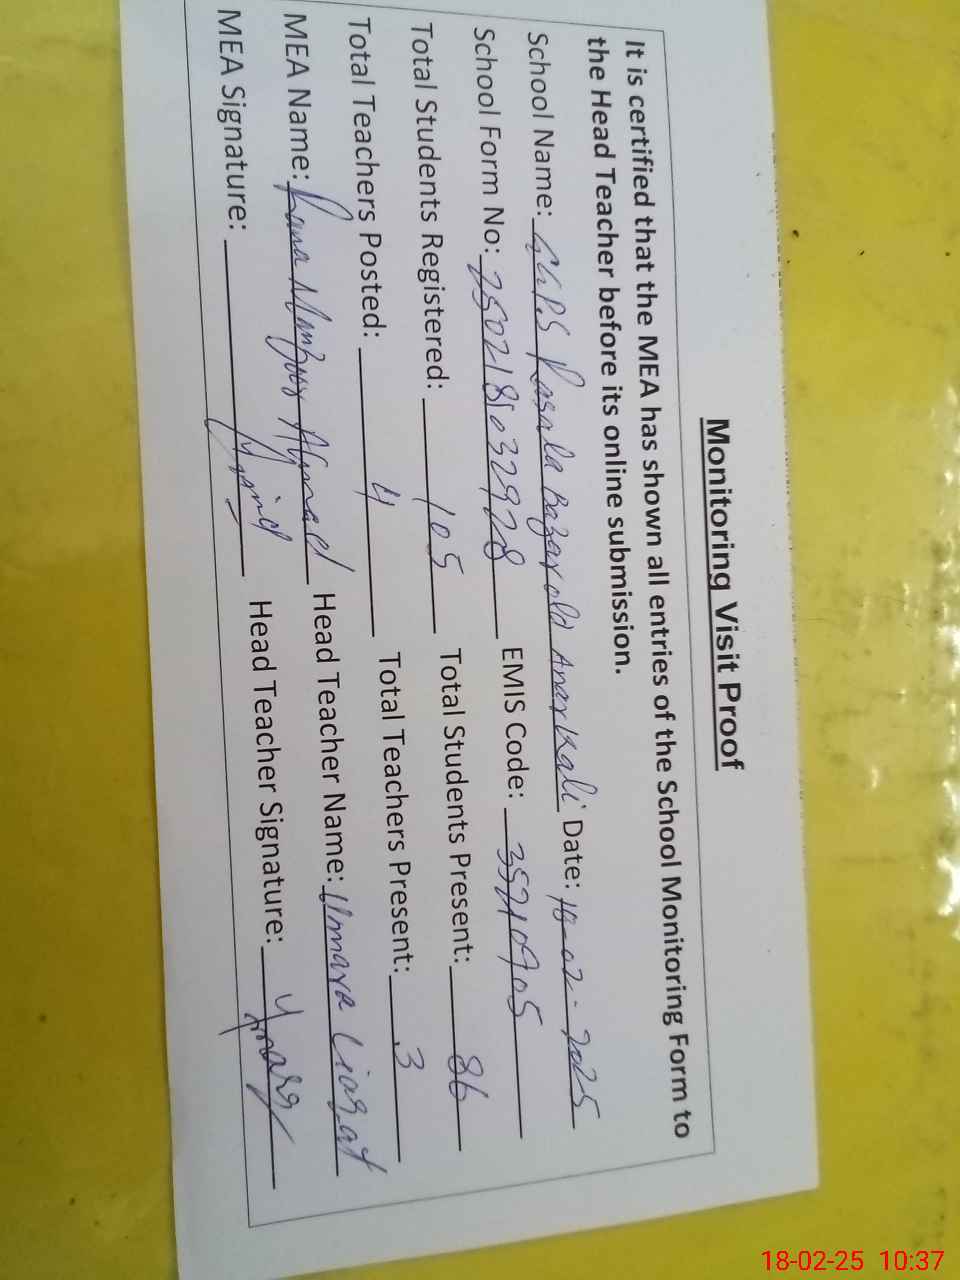 Monitoring Visit Proof
It is certified that the MEA has shown all entries of the School Monitoring Form to
the Head Teacher before its online submission.
School Name: GGPS Rasala Bazar old Anarkali Date: 18-02-2025
School Form No: EMIS Code: 35210905
Total Students Registered: 105 Total Students Present: 86
Total Teachers Posted: 4 Total Teachers Present: 3
MEA Name: Rana Manzoor Ahmad Head Teacher Name: Ummara Liaqat
MEA Signature: Head Teacher Signature:
18-02-25 10:37